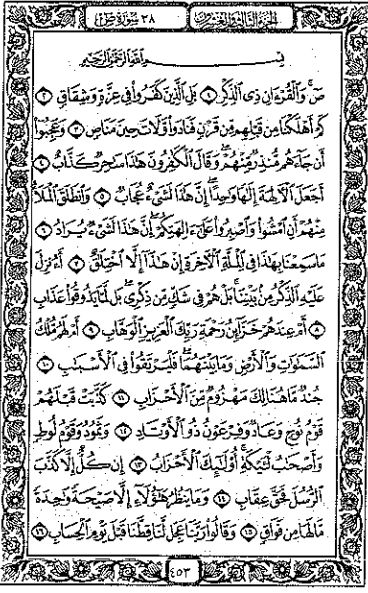 الجزء الثالث والعشرون
٣٨ سورة ص
بِسْمِ اللَّهِ الرَّحْمَٰنِ الرَّحِيمِ
صٓ ۚ وَالْقُرْءَانِ ذِى الذِّكْرِ ١ بَلِ الَّذِينَ كَفَرُوا فِى عِزَّةٍ وَشِقَاقٍ ٢
كَمْ أَهْلَكْنَا مِن قَبْلِهِم مِّن قَرْنٍ فَنَادَوا وَّلَاتَ حِينَ مَنَاصٍ ٣ وَعَجِبُوٓا
أَن جَآءَهُم مُّنذِرٌ مِّنْهُمْ ۖ وَقَالَ الْكَٰفِرُونَ هَٰذَا سَٰحِرٌ كَذَّابٌ ٤
أَجَعَلَ الْءَالِهَةَ إِلَٰهًا وَٰحِدًا ۖ إِنَّ هَٰذَا لَشَىْءٌ عُجَابٌ ٥ وَانطَلَقَ الْمَلَأُ
مِنْهُمْ أَنِ امْشُوا وَاصْبِرُوا عَلَىٰٓ ءَالِهَتِكُمْ ۖ إِنَّ هَٰذَا لَشَىْءٌ يُرَادُ ٦
مَا سَمِعْنَا بِهَٰذَا فِى الْمِلَّةِ الْءَاخِرَةِ إِنْ هَٰذَآ إِلَّا اخْتِلَٰقٌ ٧ أَءُنزِلَ
عَلَيْهِ الذِّكْرُ مِنۢ بَيْنِنَا ۚ بَلْ هُمْ فِى شَكٍّ مِّن ذِكْرِى ۖ بَل لَّمَّا يَذُوقُوا عَذَابِ
٨ أَمْ عِندَهُمْ خَزَآئِنُ رَحْمَةِ رَبِّكَ الْعَزِيزِ الْوَهَّابِ ٩ أَمْ لَهُم مُّلْكُ
السَّمَٰوَٰتِ وَالْأَرْضِ وَمَا بَيْنَهُمَا ۖ فَلْيَرْتَقُوا فِى الْأَسْبَٰبِ ١٠
جُندٌ مَّا هُنَالِكَ مَهْزُومٌ مِّنَ الْأَحْزَابِ ١١ كَذَّبَتْ قَبْلَهُمْ
قَوْمُ نُوحٍ وَعَادٌ وَفِرْعَوْنُ ذُو الْأَوْتَادِ ١٢ وَثَمُودُ وَقَوْمُ لُوطٍ
وَأَصْحَٰبُ لْـَٔيْكَةِ ۚ أُولَٰٓئِكَ الْأَحْزَابُ ١٣ إِن كُلٌّ إِلَّا كَذَّبَ
الرُّسُلَ فَحَقَّ عِقَابِ ١٤ وَمَا يَنظُرُ هَٰٓؤُلَآءِ إِلَّا صَيْحَةً وَٰحِدَةً
مَّا لَهَا مِن فَوَاقٍ ١٥ وَقَالُوا رَبَّنَا عَجِّل لَّنَا قِطَّنَا قَبْلَ يَوْمِ الْحِسَابِ ١٦
٤٥٣